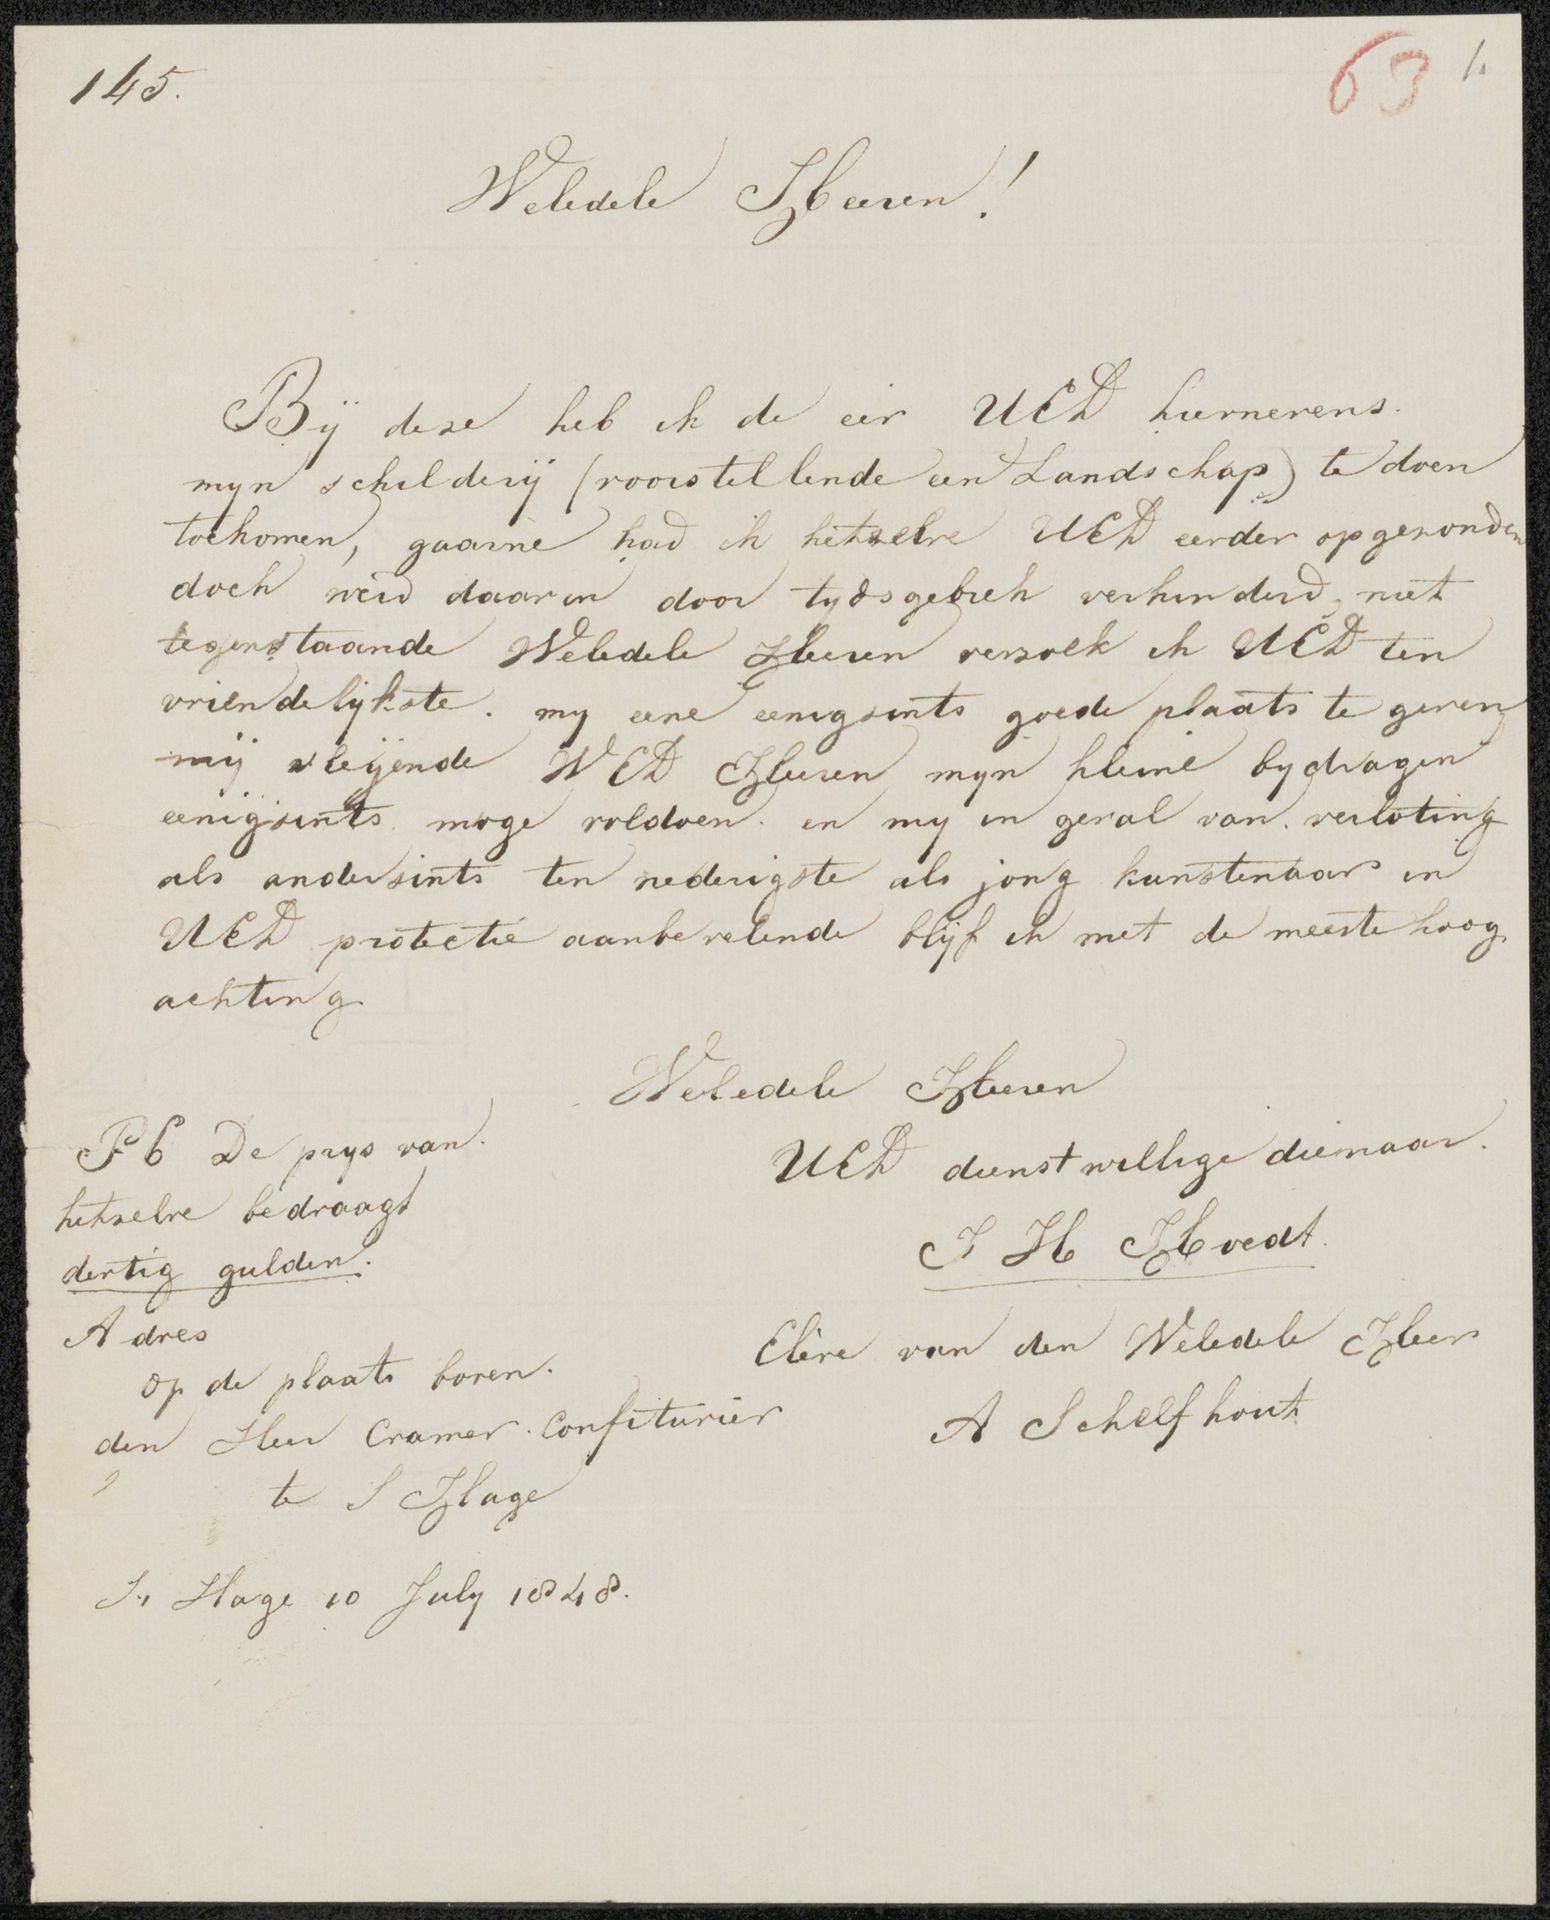 145.
63 1.
Weledele Heeren!
Bij deze heb ik de eer UEd hiernevens.
myn schilderij (voorstellende een Landschap) te doen
toekomen, gaarne had ik hetzelve UEd eerder opgezonden
doch werd daar in door tydsgebrek verhinderd, niet
tegenstaande Weledele Heeren verzoek ik UEd ten
vriendelykste. my eene eenigsints goede plaats te geven
mij vleijende WEd Heeren myn kleine bydragen
eenigsints moge voldoen. en my in geval van. verloting
als andersints ten nederigste als jong kunstenaar in
UEd protectie aanbevelende blijf ik met de meeste hoog
achting
Weledele Heeren
UEd dienstwillige dienaar.
J H Hoedt.
Eleve van den Weledele Heer
A Schelfhout
PS De prys van.
hetzelve bedraagt
dertig gulden.
Adres
op de plaats boven.
den Heer Cramer. Confiturier
te S Hage
S, Hage 10 July 1848.